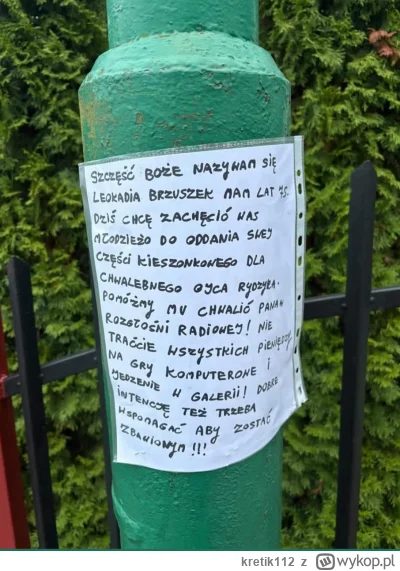 SZCZĘŚĆ BOŻE NAZYWAM SIĘ
LEOKADIA BRZUSZEK MAM LAT 75.
DZIŚ CHCĘ ZACHĘCIĆ WAS
MŁODZIEŻO DO ODDANIA SWEJ
CZĘŚCI KIESZONKOWEGO DLA
CHWALEBNEGO OJCA RYDZYKA.
POMÓŻMY MU CHWALIĆ PANA W
ROZGŁOŚNI RADIOWEJ! NIE
TRAĆCIE WSZYSTKICH PIENIĘDZY
NA GRY KOMPUTEROWE I
JEDZENIE W GALERII! DOBRE
INTENCJE TEŻ TRZEBA
WSPOMAGAĆ ABY ZOSTAĆ
ZBAWIONYM!!!
kretik112 z wykop.pl